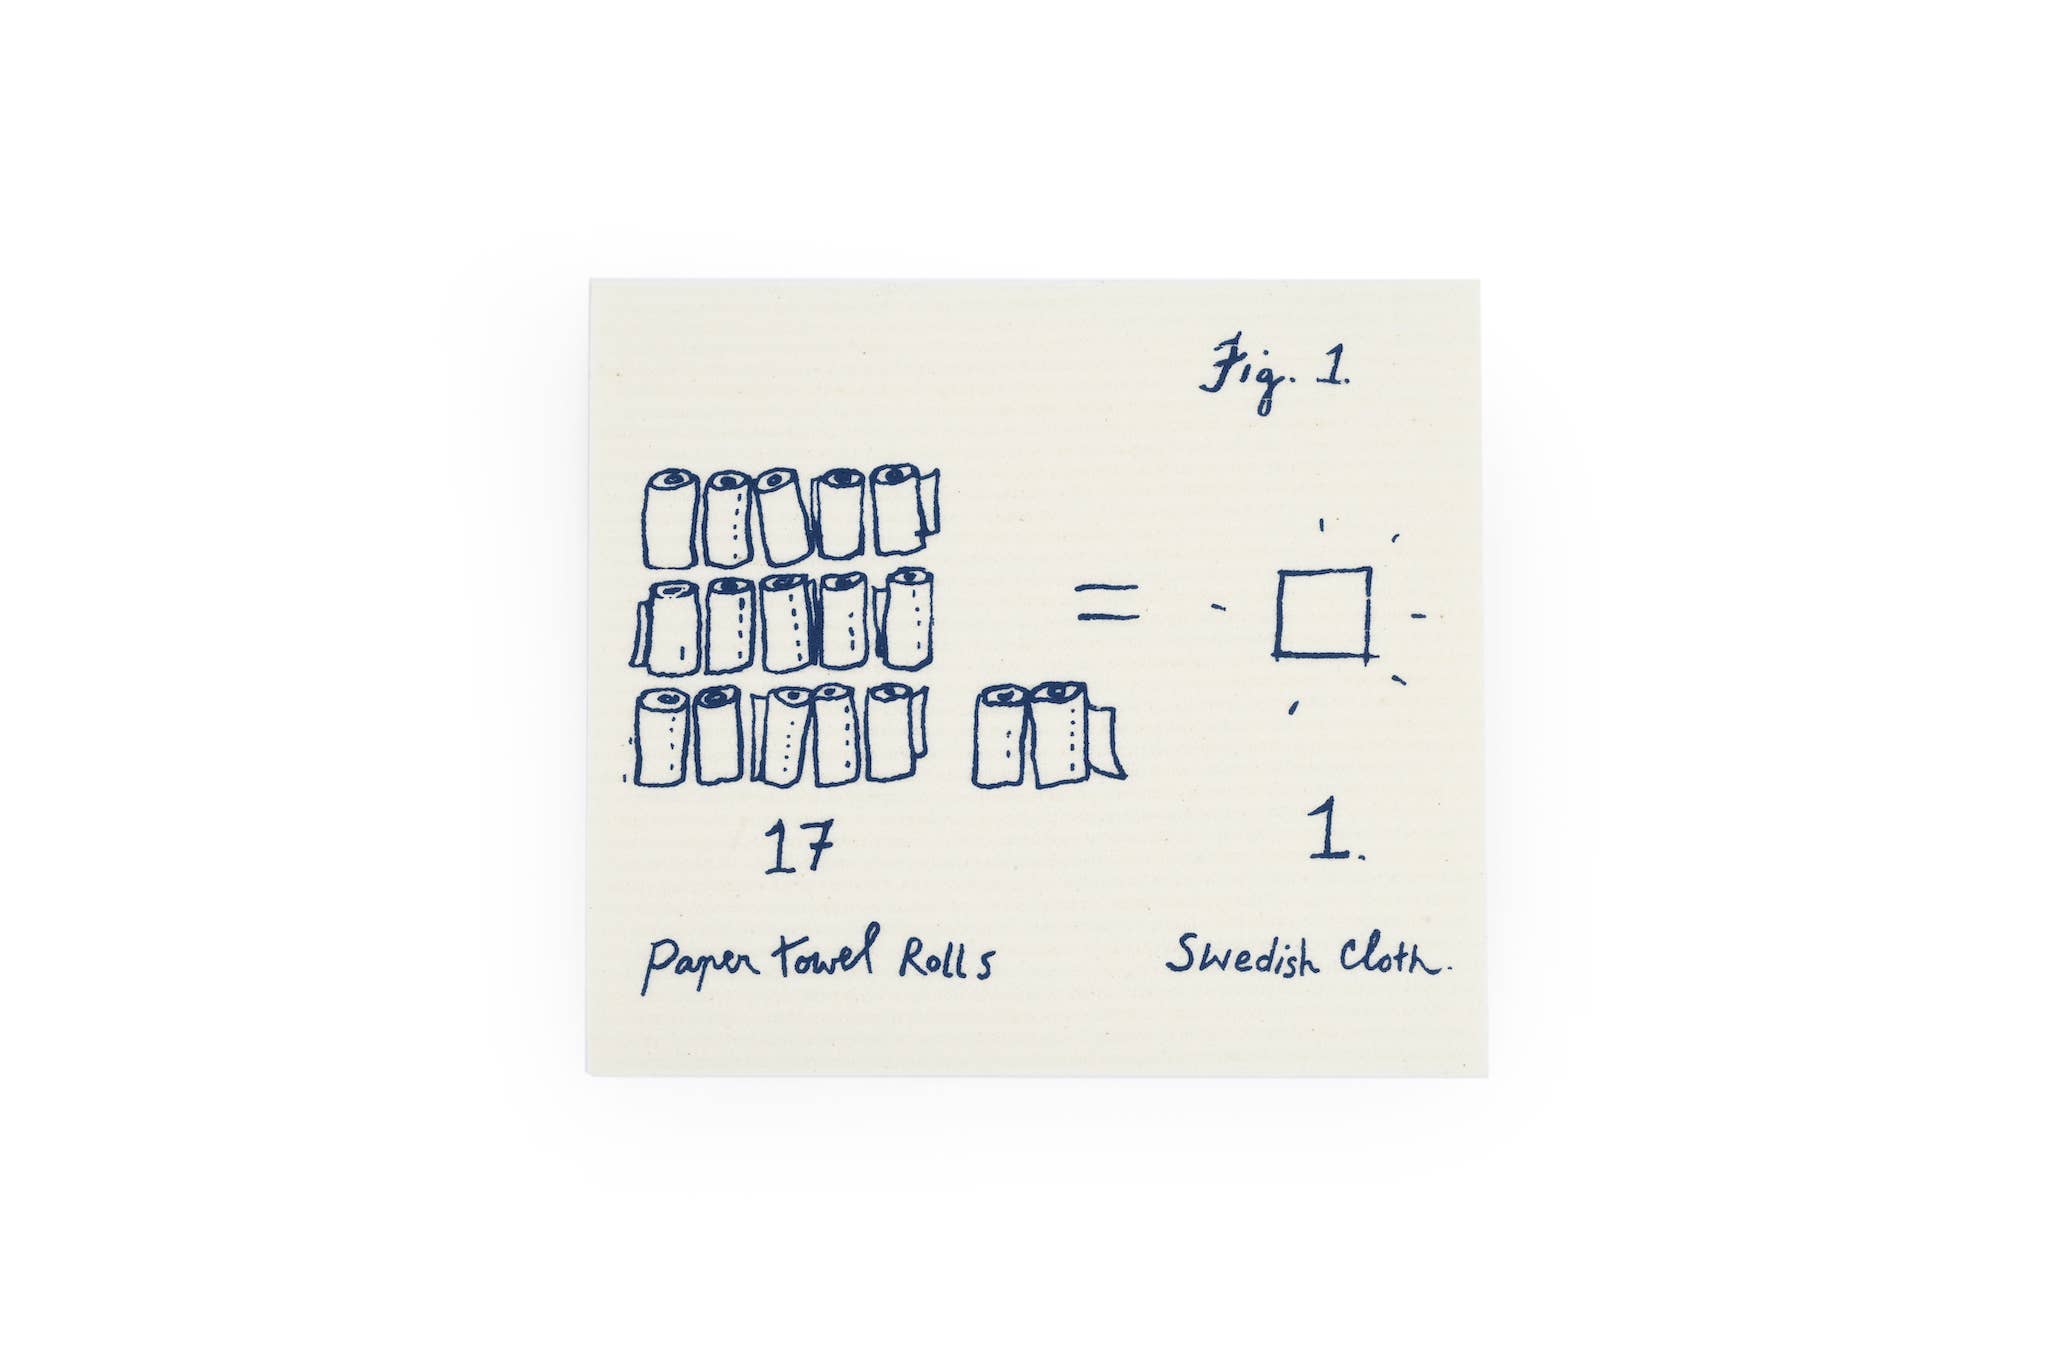 Fig. 1.
=
17
1.
Paper towel Rolls
Swedish Cloth.